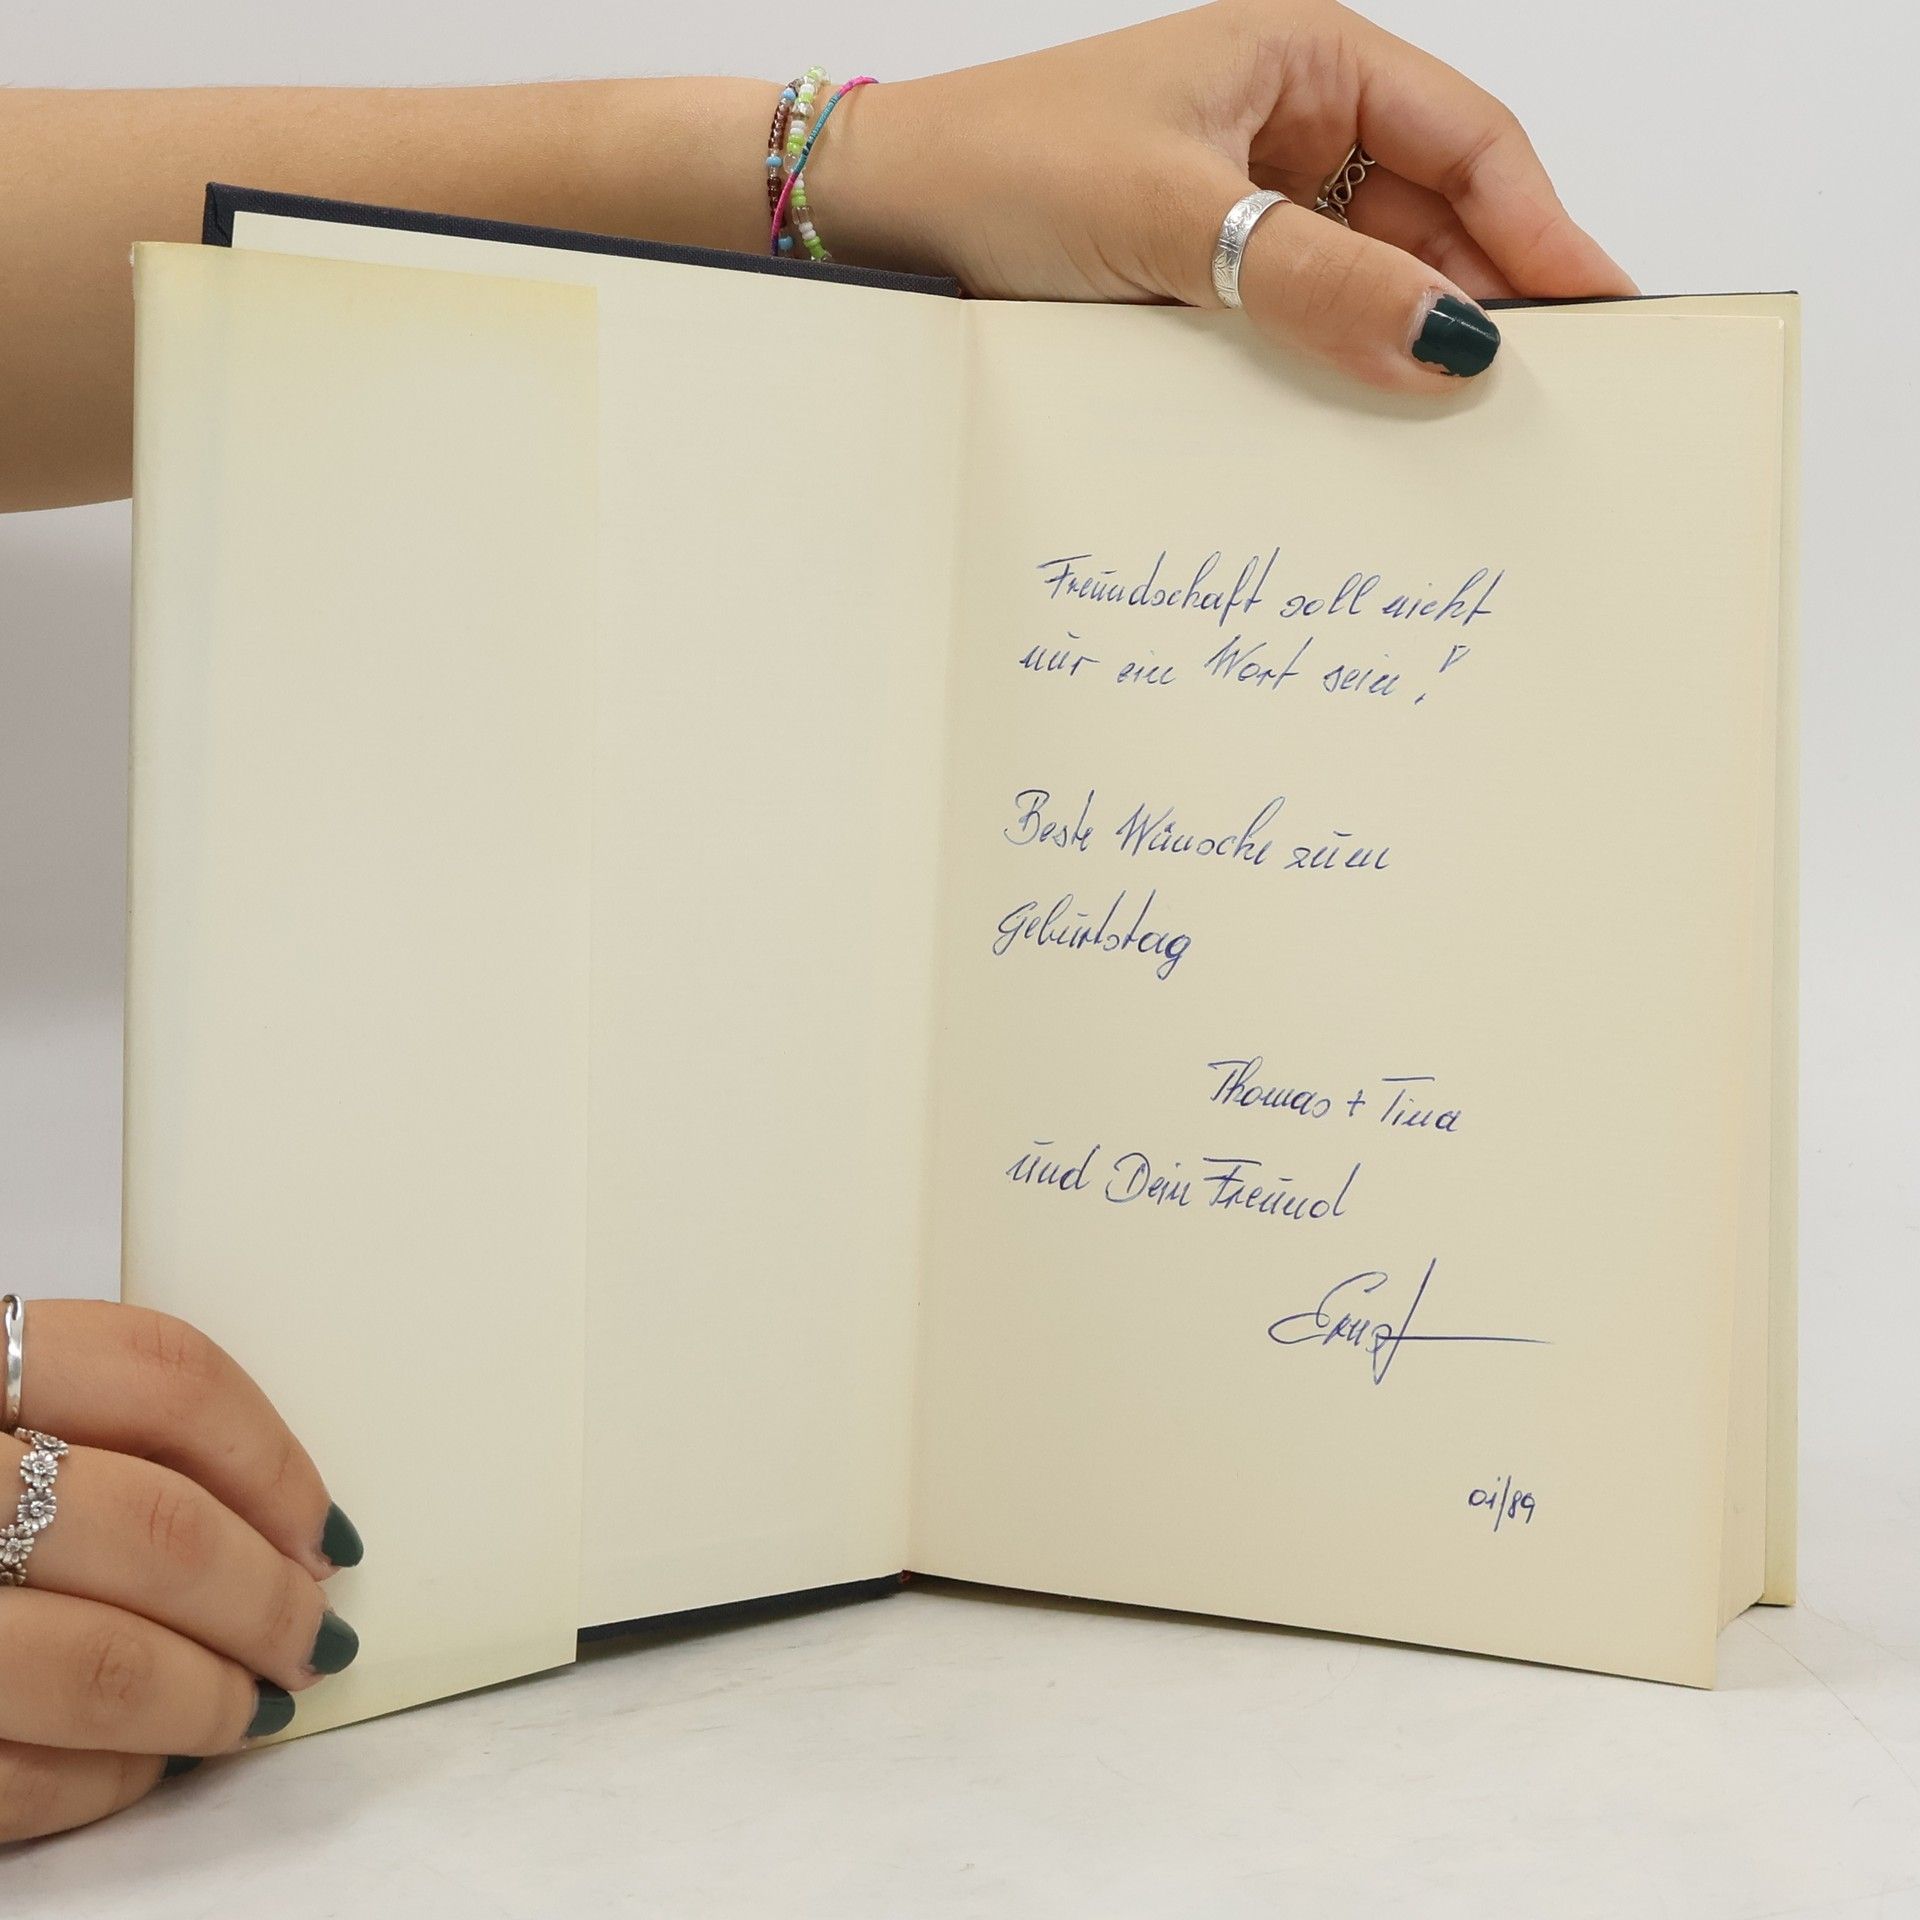 Freundschaft soll nicht
nur ein Wort sein!
Beste Wünsche zum
Geburtstag
Thomas + Tina
und Dein Freund
Ernst
01/89